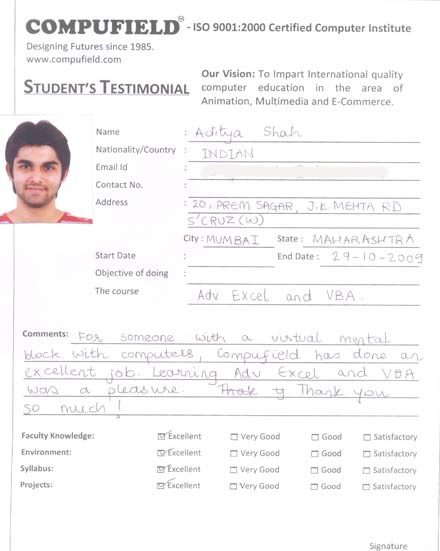 COMPUFIELD® - ISO 9001:2000 Certified Computer Institute
Designing Futures since 1985.
www.compufield.com
STUDENT'S TESTIMONIAL
Our Vision: To Impart International quality
computer education in the area of
Animation, Multimedia and E-Commerce.
Name : Aditya Shah
Nationality/Country : INDIAN
Email Id :
Contact No. :
Address : 20, PREM SAGAR, J.K. MEHTA RD
S'CRUZ (W)
City : MUMBAI State : MAHARASHTRA
Start Date : End Date : 29-10-2009
Objective of doing :
The course Adv Excel and VBA.
Comments: For someone with a virtual mental
block with computers, Compufield has done an
excellent job. Learning Adv Excel and VBA
was a pleasure. Thank you
so much!
Faculty Knowledge: Excellent Very Good Good Satisfactory
Environment: Excellent Very Good Good Satisfactory
Syllabus: Excellent Very Good Good Satisfactory
Projects: Excellent Very Good Good Satisfactory
Signature